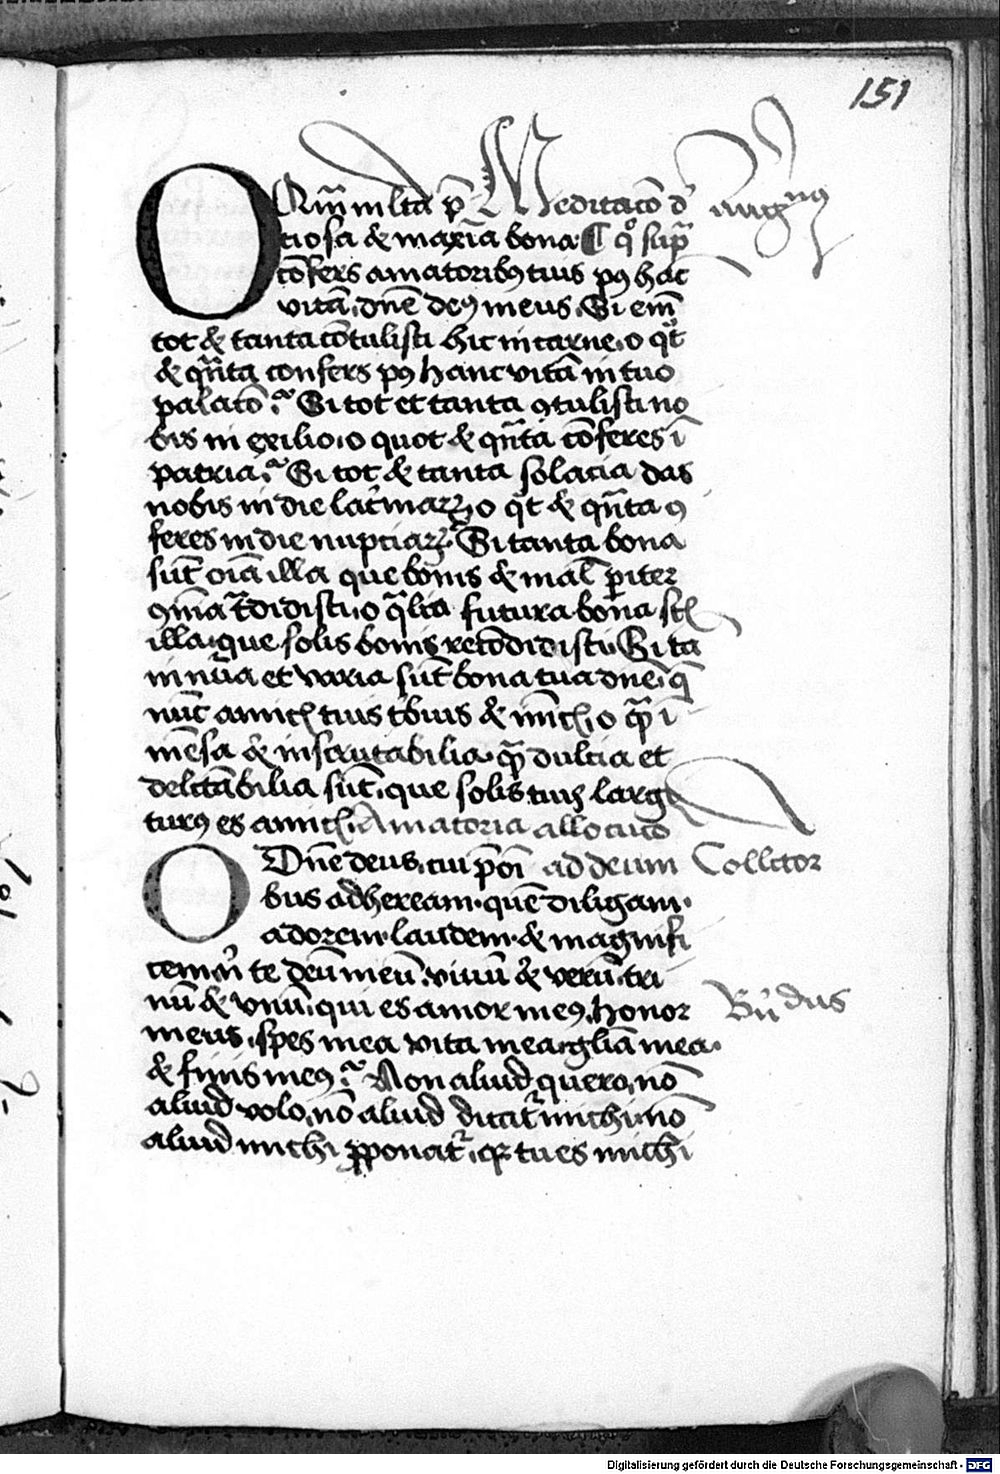 151
O Quā mlta p̄ Meditacō d' Augꝰ
ciosa & maxīa bona ¶ qͦ sup̄
cōfers amatoribꝫ tuis pꝰ hāc
vitā, dn̄e deꝰ meus. Si em̄
tot & tanta cōtulisti hic in carne, o qͦt
& qn̄ta confers pꝰ hanc vitā in tuo
palatō? Si tot et tanta ꝯtulisti no
bis in exilio, o quot & qn̄ta cōferes ī
patria? Si tot & tanta solacia das
nobis in die lac̄maꝝ, o qͦt & qn̄ta ꝯ
feres in die nuptiaꝝ? Si tanta bona
sūt oīa illa que bonis & mal̄ ꝑiter
didisti, o q̄lia futura bona
illa que solis bonis recōdidisti. Si ta
et varia sūt bona tua dn̄e, q̄
nūc amicis tuis & , o qͣ ī
mēsa & inscrutabilia, qͣ dulcia et
delc̄tabilia sūt, que solis tuis largi
turꝰ es amicis. Amatoria allocucō
O Dn̄e deus, cui p̄ oī ad deum Collc̄tor
bus adheream, quē diligam,
adorem, laudem, & magnifi
cem, n' te deū meū, vivū & verū, tri
nū & vnū, qui es amor meꝰ, honor
meus, spes mea, vita mea, gl̄ia mea,
& finis meꝰ? Non aliud quero, nō
aliud volo, nō aliud dicat᷑ michi, nō
aliud michi ꝓponat᷑, qꝫ tu es michi
Digitalisierung gefördert durch die Deutsche Forschungsgemeinschaft - DFG